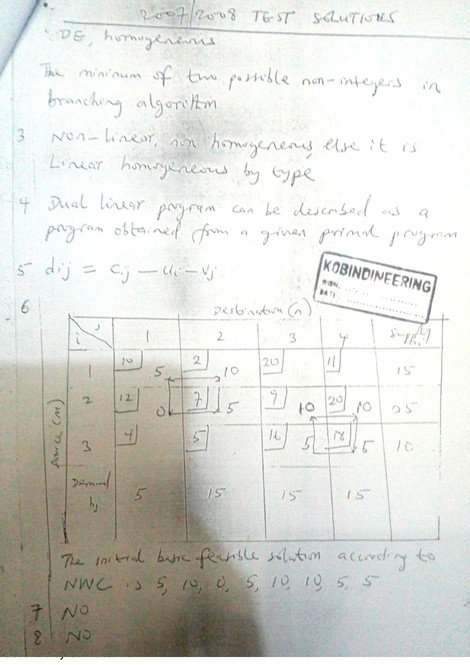 2007/2008 TEST SOLUTIONS
DE, homogeneous
The minimum of two possible non-integers in
branching algorithm
3 Non-Linear, non homogeneous, else it is
Linear homogeneous by type
4 Dual linear program can be described as a
program obtained from a given primal program
5 dij = Cij - Ui - Vj
KOBINDINEERING
SIGN.
DATE
6
Destination (n)
i j 1 2 3 4 Supply
1 10 5 2 10 20 11 15
2 12 0 7 5 9 10 20 10 25
3 4 5 16 5 18 5 10
Source (m)
Demand bj 5 15 15 15
The initial basic feasible solution according to
NWC is 5, 10, 0, 5, 10, 10, 5, 5
7 NO
8 NO